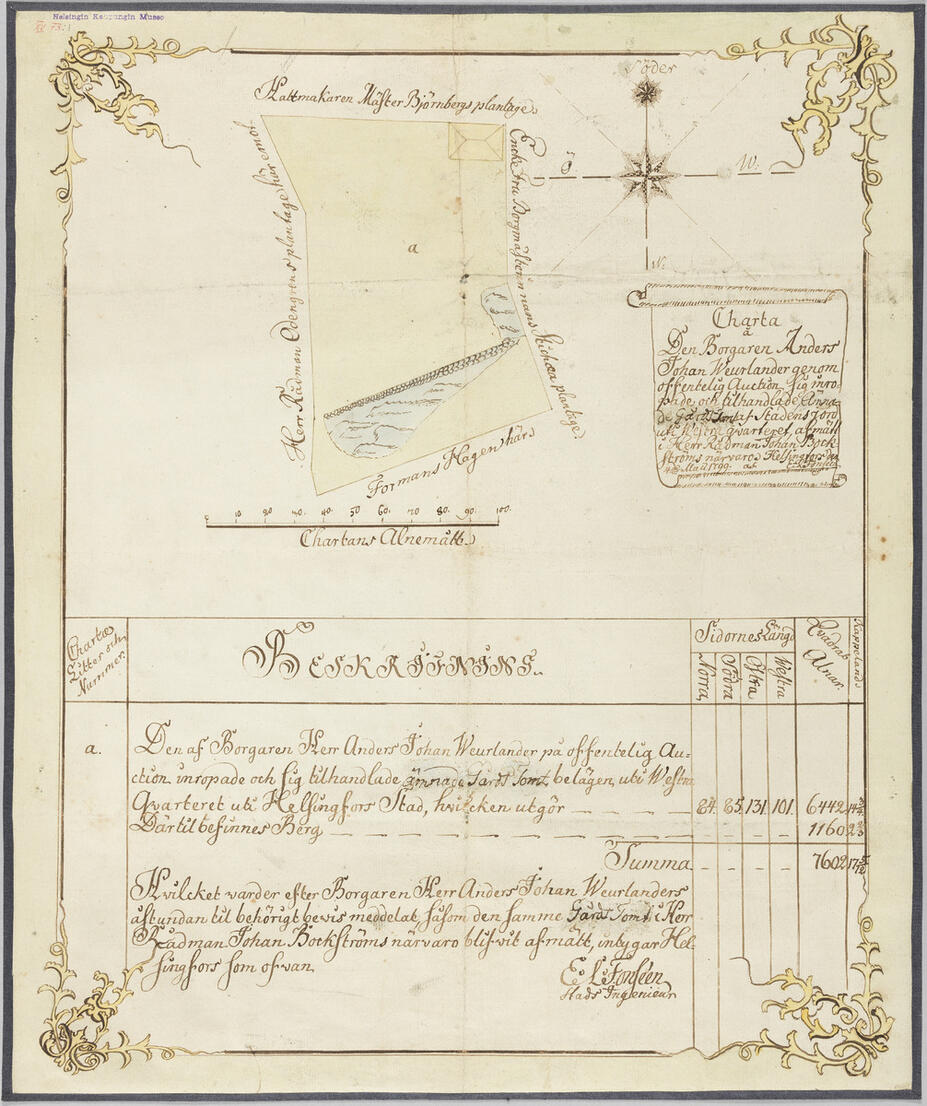 Helsingin Kaupungin Museo
Söder
Hattmakaren Mäster Björnbergs plantage
Ö
W.
N.
Herr Rådman Odengrens plantage häremot
Encke Fru Borgmästerinnans plantage
a
Formans Hagen här
10 20 30. 40. 50 60. 70 80. 90. 100.
Chartans Alnemått
Charta
å
Den Borgaren Anders
Johan Weurlander genom
offentelig Auction sig inro-
pade och tilhandlade ämna-
de Gårds Tomt af Stadens Jord
uti Westra qvarteret, afmätt
i Herr Rådman Johan Bock-
ströms närvaro Helsingfors den
Maii 1799. af E. L. Fonseen
Chartæ
Litter och
Nummer.
BESKRIFNING.
Sidornes Längd
Norra
Södra
Östra
Westra
Qvadrat
Alnar.
Kappelands
a.
Den af Borgaren Herr Anders Johan Weurlander på offentelig Au=
ction inropade och sig tilhandlade ämnade Gårds Tomt belägen uti Westra
Qvarteret uti Helsingfors Stad, hvilcken utgör 84. 85. 131. 101. 6442
Därtil befinnes Berg 1160
Summa 7602
Hvilcket varder efter Borgaren Herr Anders Johan Weurlanders
åstundan til behörigt bevis meddelat, såsom den samme Gårds Tomt i Herr
Rådman Johan Bockströms närvaro blifvit afmätt, intygar Hel-
singfors som ofvan.
E L Fonseen
Stads Ingenieur